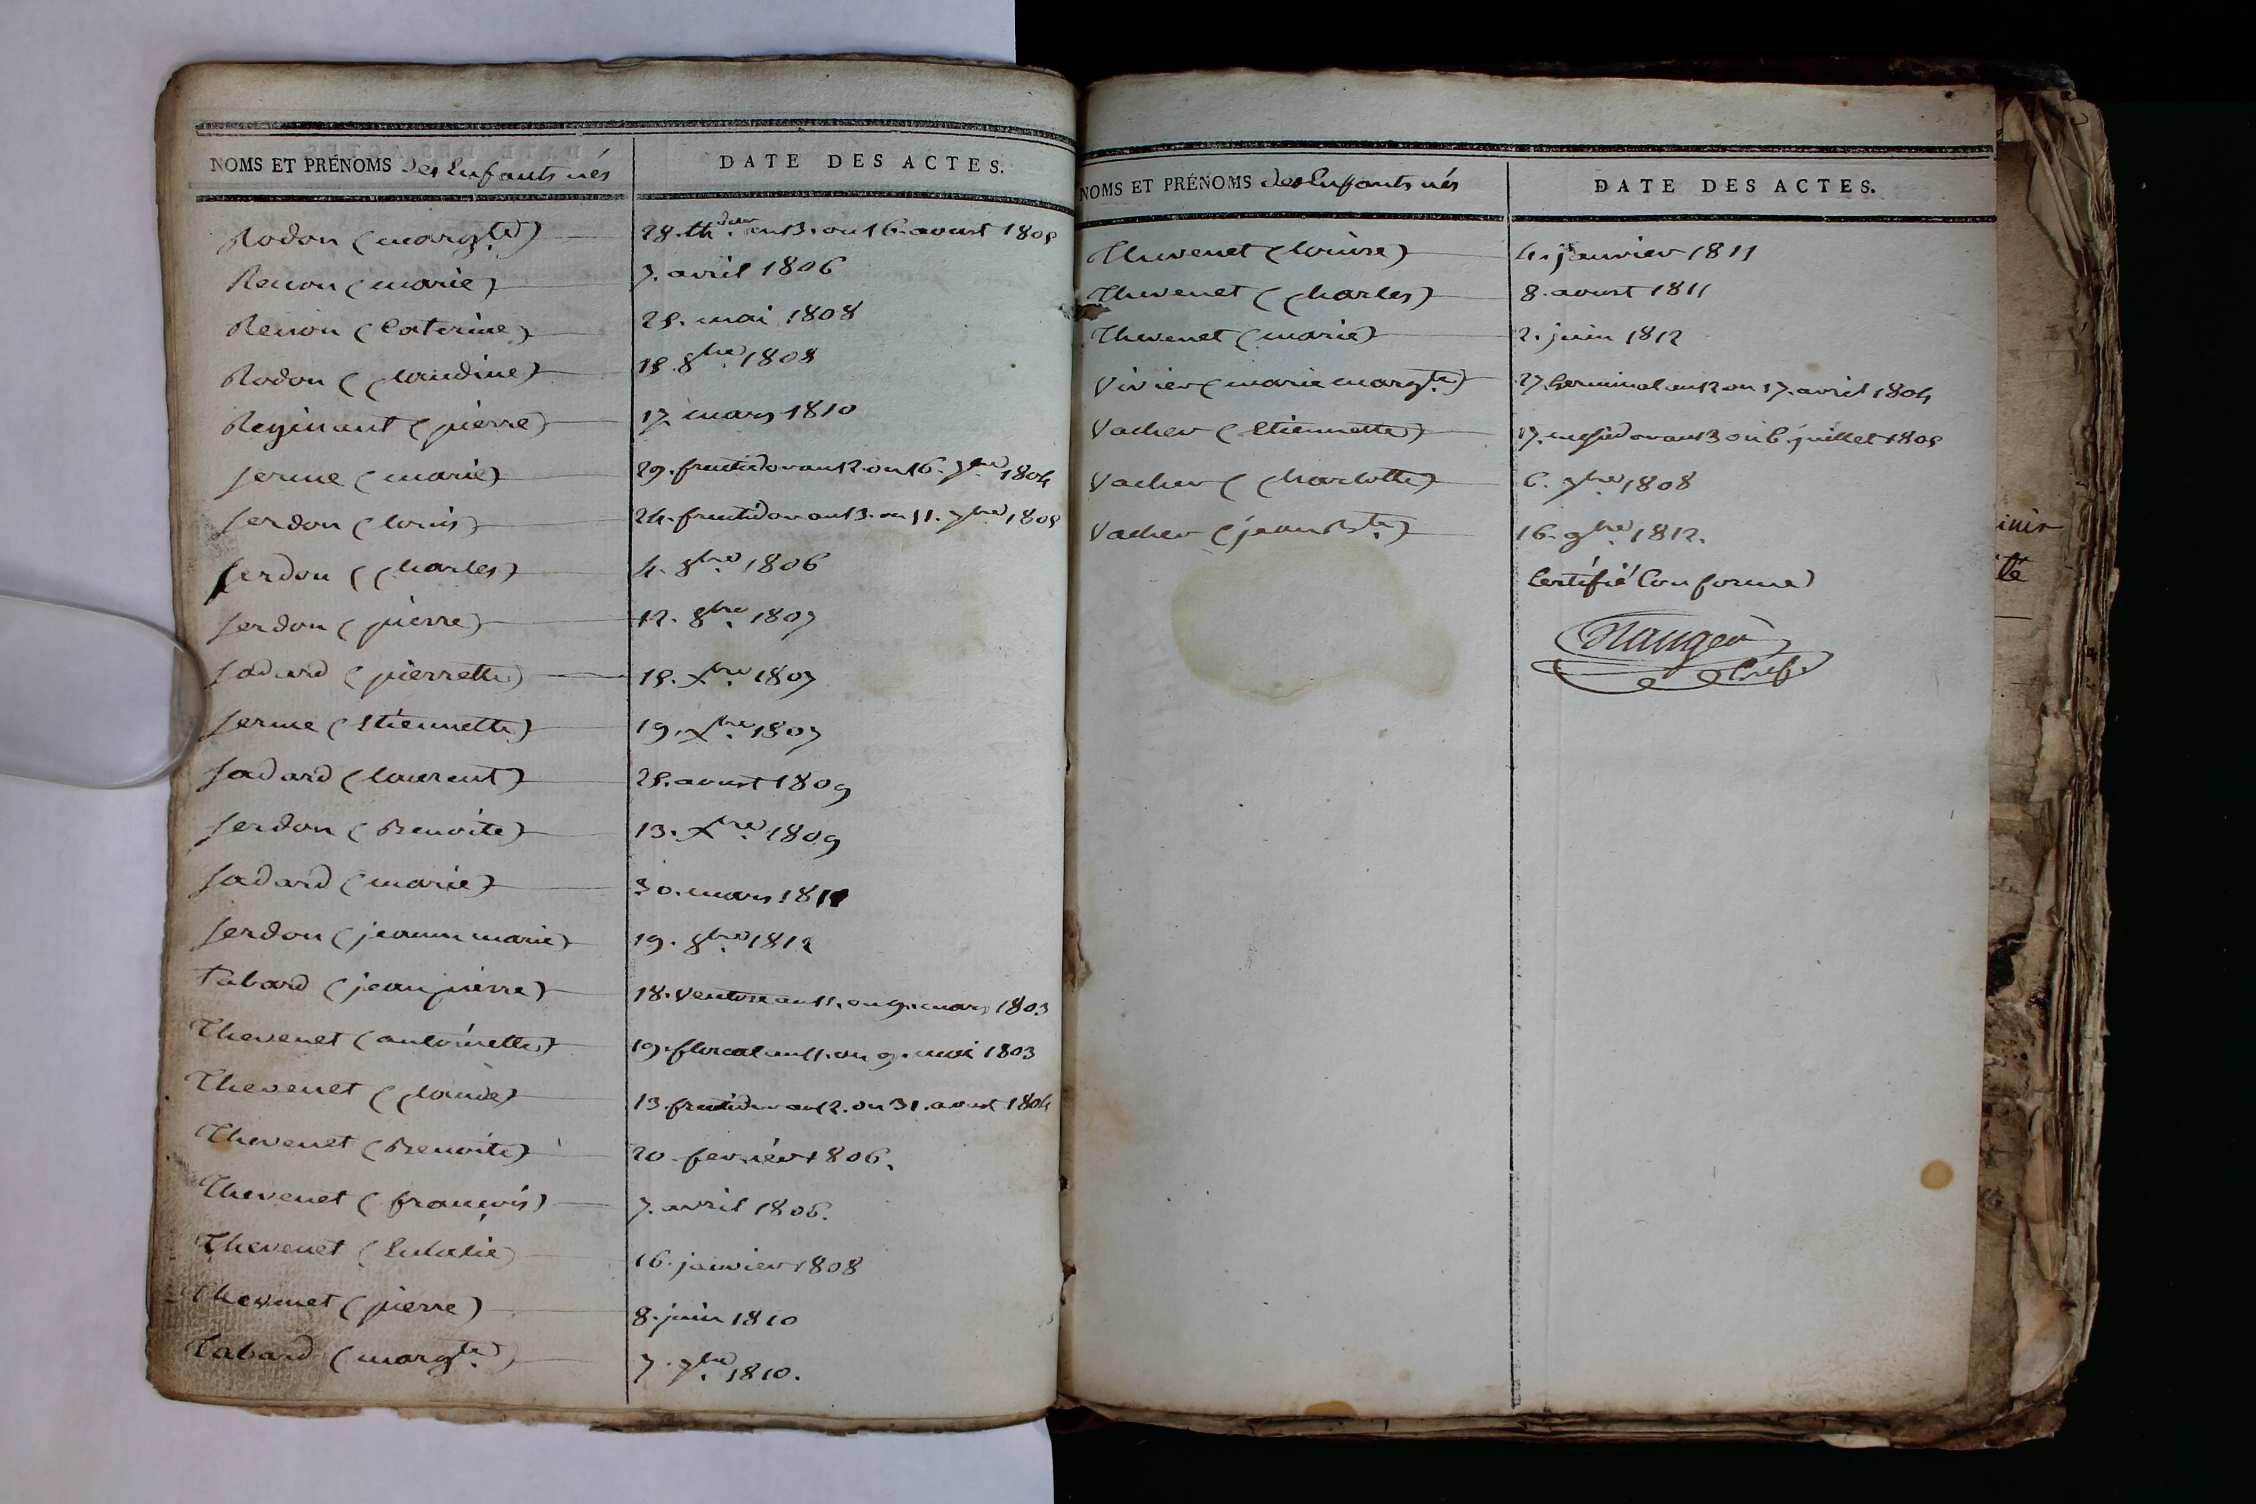 NOMS ET PRÉNOMS des Enfants nés
DATE DES ACTES.
Rodon (margte) 28. thdor an 13. ou 16. aoust 1805
Renon (marie) 7. avril 1806
Renon (Caterine) 25. mai 1808
Rodon (Claudine) 15. 8bre 1808
Reginant (pierre) 17. mars 1810
Serme (marie) 29. fructidor an 12 ou 16. 7bre 1804
Serdon (louis) 24. fructidor an 13. ou 11. 7bre 1805
Serdon (Charles) 4. 8bre 1806
Serdon (pierre) 12. 8bre 1807
Sadard (pierrette) 15. Xbre 1807
Serme (Etiennette) 19. Xbre 1807
Sadard (laurent) 25. aoust 1809
Serdon (Benoite) 13. Xbre 1809
Sadard (marie) 30. mars 1811
Serdon (jeanne marie) 19. 8bre 1812
Tabard (jean pierre) 18. Ventose an 11. ou 9. mars 1803
Thevenet (antoinette) 19. floreal an 11. ou 9. mai 1803
Thevenet (Claude) 13. fructidor an 12. ou 31. aoust 1804
Thevenet (Benoite) 20. fevrier 1806.
Thevenet (francois) 7. avril 1806.
Thevenet (Eulalie) 16. janvier 1808
Thevenet (pierre) 8. juin 1810
Tabard (margte) 7. 7bre 1810.
NOMS ET PRÉNOMS des Enfants nés
DATE DES ACTES.
Thevenet (louise) 4. janvier 1811
Thevenet (Charles) 8. aoust 1811
Thevenet (marie) 2. juin 1812
Vivier (marie margte) 27. Germinal an 12 ou 17. avril 1804
Vacher (Etiennette) 17. messidor an 13 ou 6. juillet 1805
Vacher (Charlotte) 6. 7bre 1808
Vacher (jean Bte) 16. 9bre 1812.
Certifié Conforme